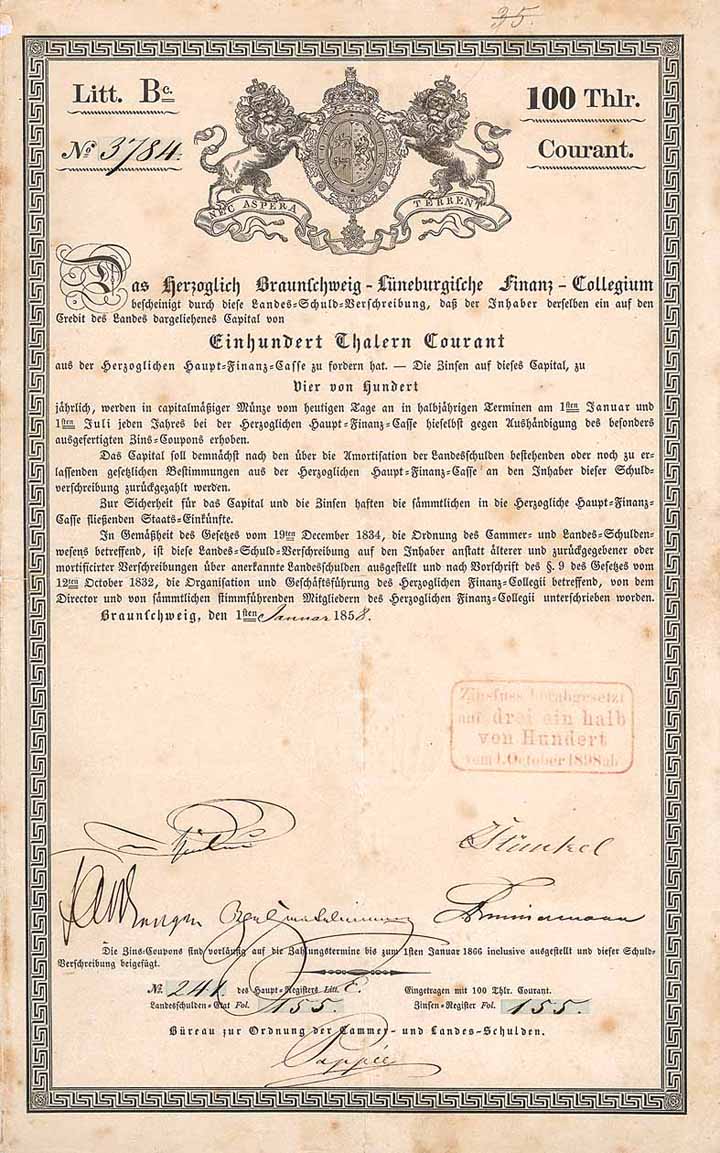 35.
Litt. Bc.
100 Thlr.
No 3784.
Courant.
NEC ASPERA TERRENT
Das Herzoglich Braunschweig-Lüneburgische Finanz-Collegium
bescheinigt durch diese Landes-Schuld-Verschreibung, daß der Inhaber derselben ein auf den
Credit des Landes dargeliehenes Capital von
Einhundert Thalern Courant
aus der Herzoglichen Haupt-Finanz-Casse zu fordern hat. — Die Zinsen auf dieses Capital, zu
Vier von Hundert
jährlich, werden in capitalmäßiger Münze vom heutigen Tage an in halbjährigen Terminen am 1sten Januar und
1sten Juli jeden Jahres bei der Herzoglichen Haupt-Finanz-Casse hieselbst gegen Aushändigung des besonders
ausgefertigten Zins-Coupons erhoben.
Das Capital soll demnächst nach den über die Amortisation der Landesschulden bestehenden oder noch zu er-
lassenden gesetzlichen Bestimmungen aus der Herzoglichen Haupt-Finanz-Casse an den Inhaber dieser Schuld-
verschreibung zurückgezahlt werden.
Zur Sicherheit für das Capital und die Zinsen haften die sämmtlichen in die Herzogliche Haupt-Finanz-
Casse fließenden Staats-Einkünfte.
In Gemäßheit des Gesetzes vom 19ten December 1834, die Ordnung des Cammer- und Landes-Schulden-
wesens betreffend, ist diese Landes-Schuld-Verschreibung auf den Inhaber anstatt älterer und zurückgegebener oder
mortificirter Verschreibungen über anerkannte Landesschulden ausgestellt und nach Vorschrift des §. 9 des Gesetzes vom
12ten October 1832, die Organisation und Geschäftsführung des Herzoglichen Finanz-Collegii betreffend, von dem
Director und von sämmtlichen stimmführenden Mitgliedern des Herzoglichen Finanz-Collegii unterschrieben worden.
Braunschweig, den 1sten Januar 1858.
Zinsfuss herabgesetzt
auf drei ein halb
von Hundert
vom 1. October 1898 ab.
Stünkel
Zimmermann
Die Zins-Coupons sind vorläufig auf die Zahlungstermine bis zum 1sten Januar 1866 inclusive ausgestellt und dieser Schuld-
Verschreibung beigefügt.
No. 241 des Haupt-Registers Litt. E.
Eingetragen mit 100 Thlr. Courant.
Landesschulden-Etat Fol. 155.
Zinsen-Register Fol. 155.
Büreau zur Ordnung der Cammer- und Landes-Schulden.
Pappée